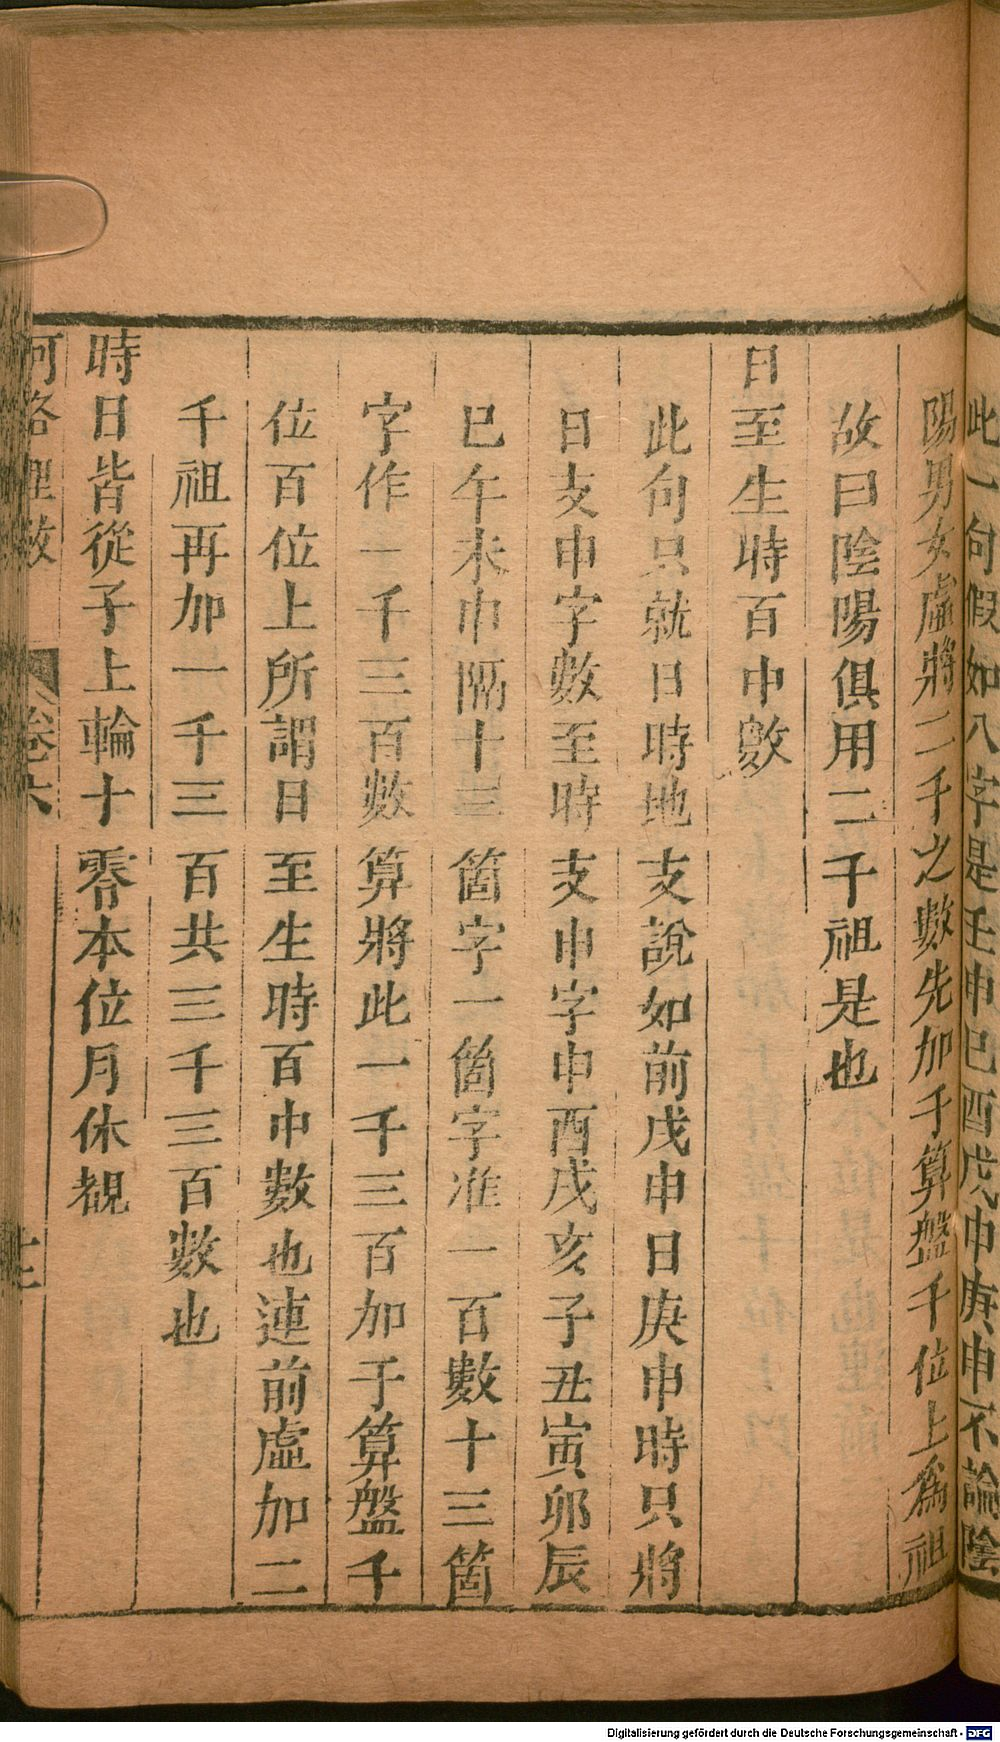 此一句假如八字是壬申己酉戊申庚申不論陰
陽男女虛將二千之數先加于算盤千位上爲祖
故曰陰陽俱用二千祖是也
日至生時百中數
此句只就日時地支說如前戊申日庚申時只將
日支申字數至時支申字申酉戌亥子丑寅卯辰
巳午未申隔十三箇字一箇字准一百數十三箇
字作一千三百數算將此一千三百加于算盤千
位百位上所謂日至生時百中數也連前虛加二
千祖再加一千三百共三千三百數也
時日皆從子上輪十零本位月休覩
河洛理數
卷六
Digitalisierung gefördert durch die Deutsche Forschungsgemeinschaft - DFG